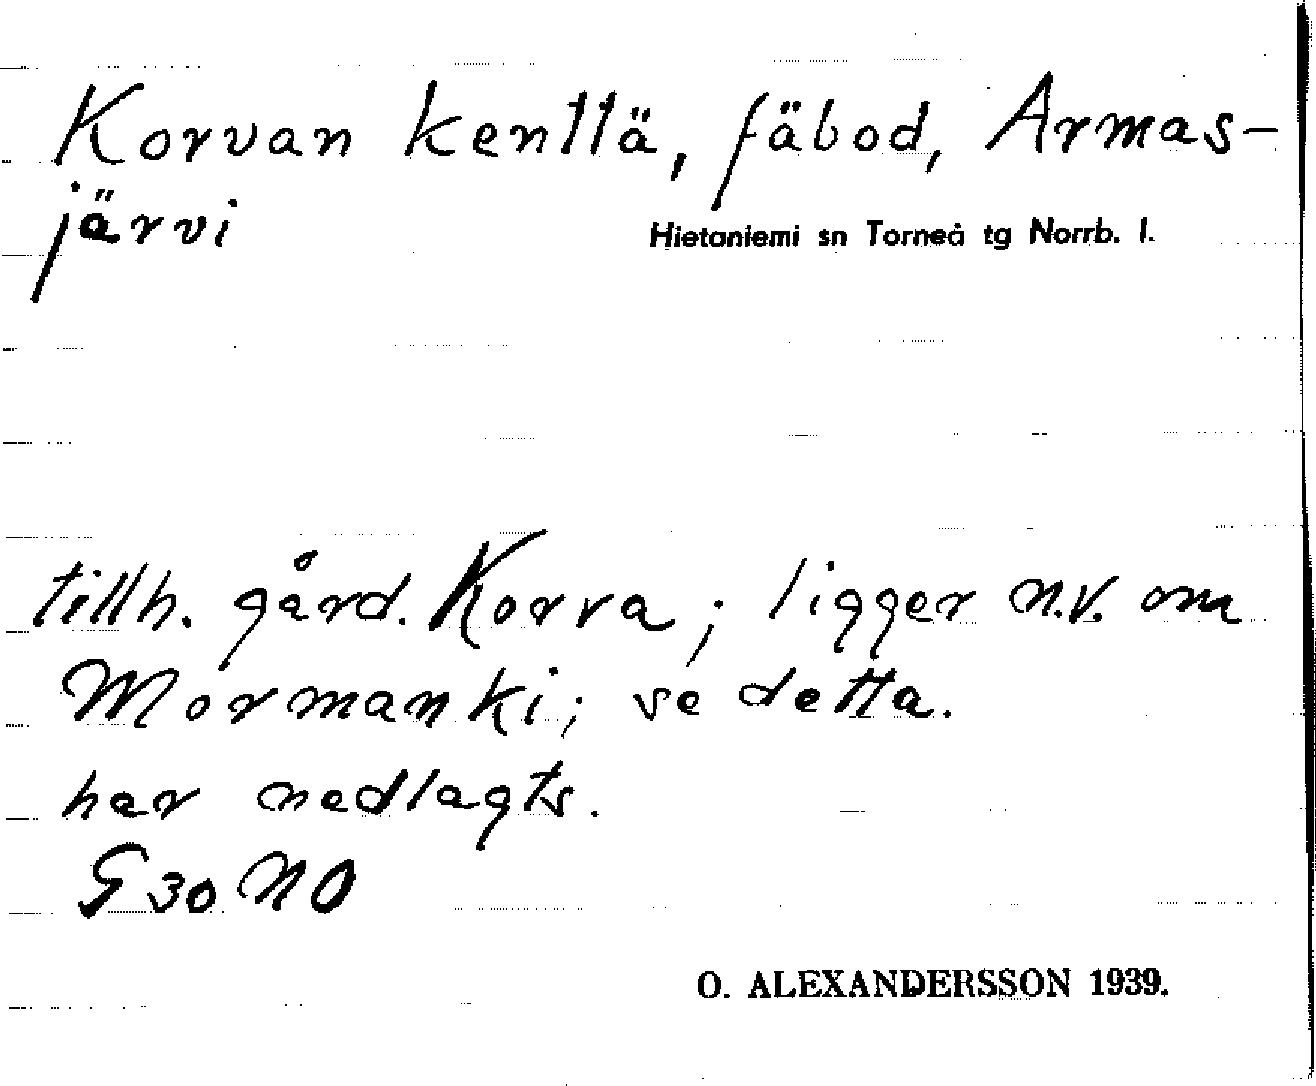 Korvan kenttä, fäbod, Armas-
järvi
Hietaniemi sn Torneå tg Norrb. l.
tillh. gård. Korva; ligger n.v. om
Mormanki; se detta.
har nedlagts.
G 30 NO
O. ALEXANDERSSON 1939.